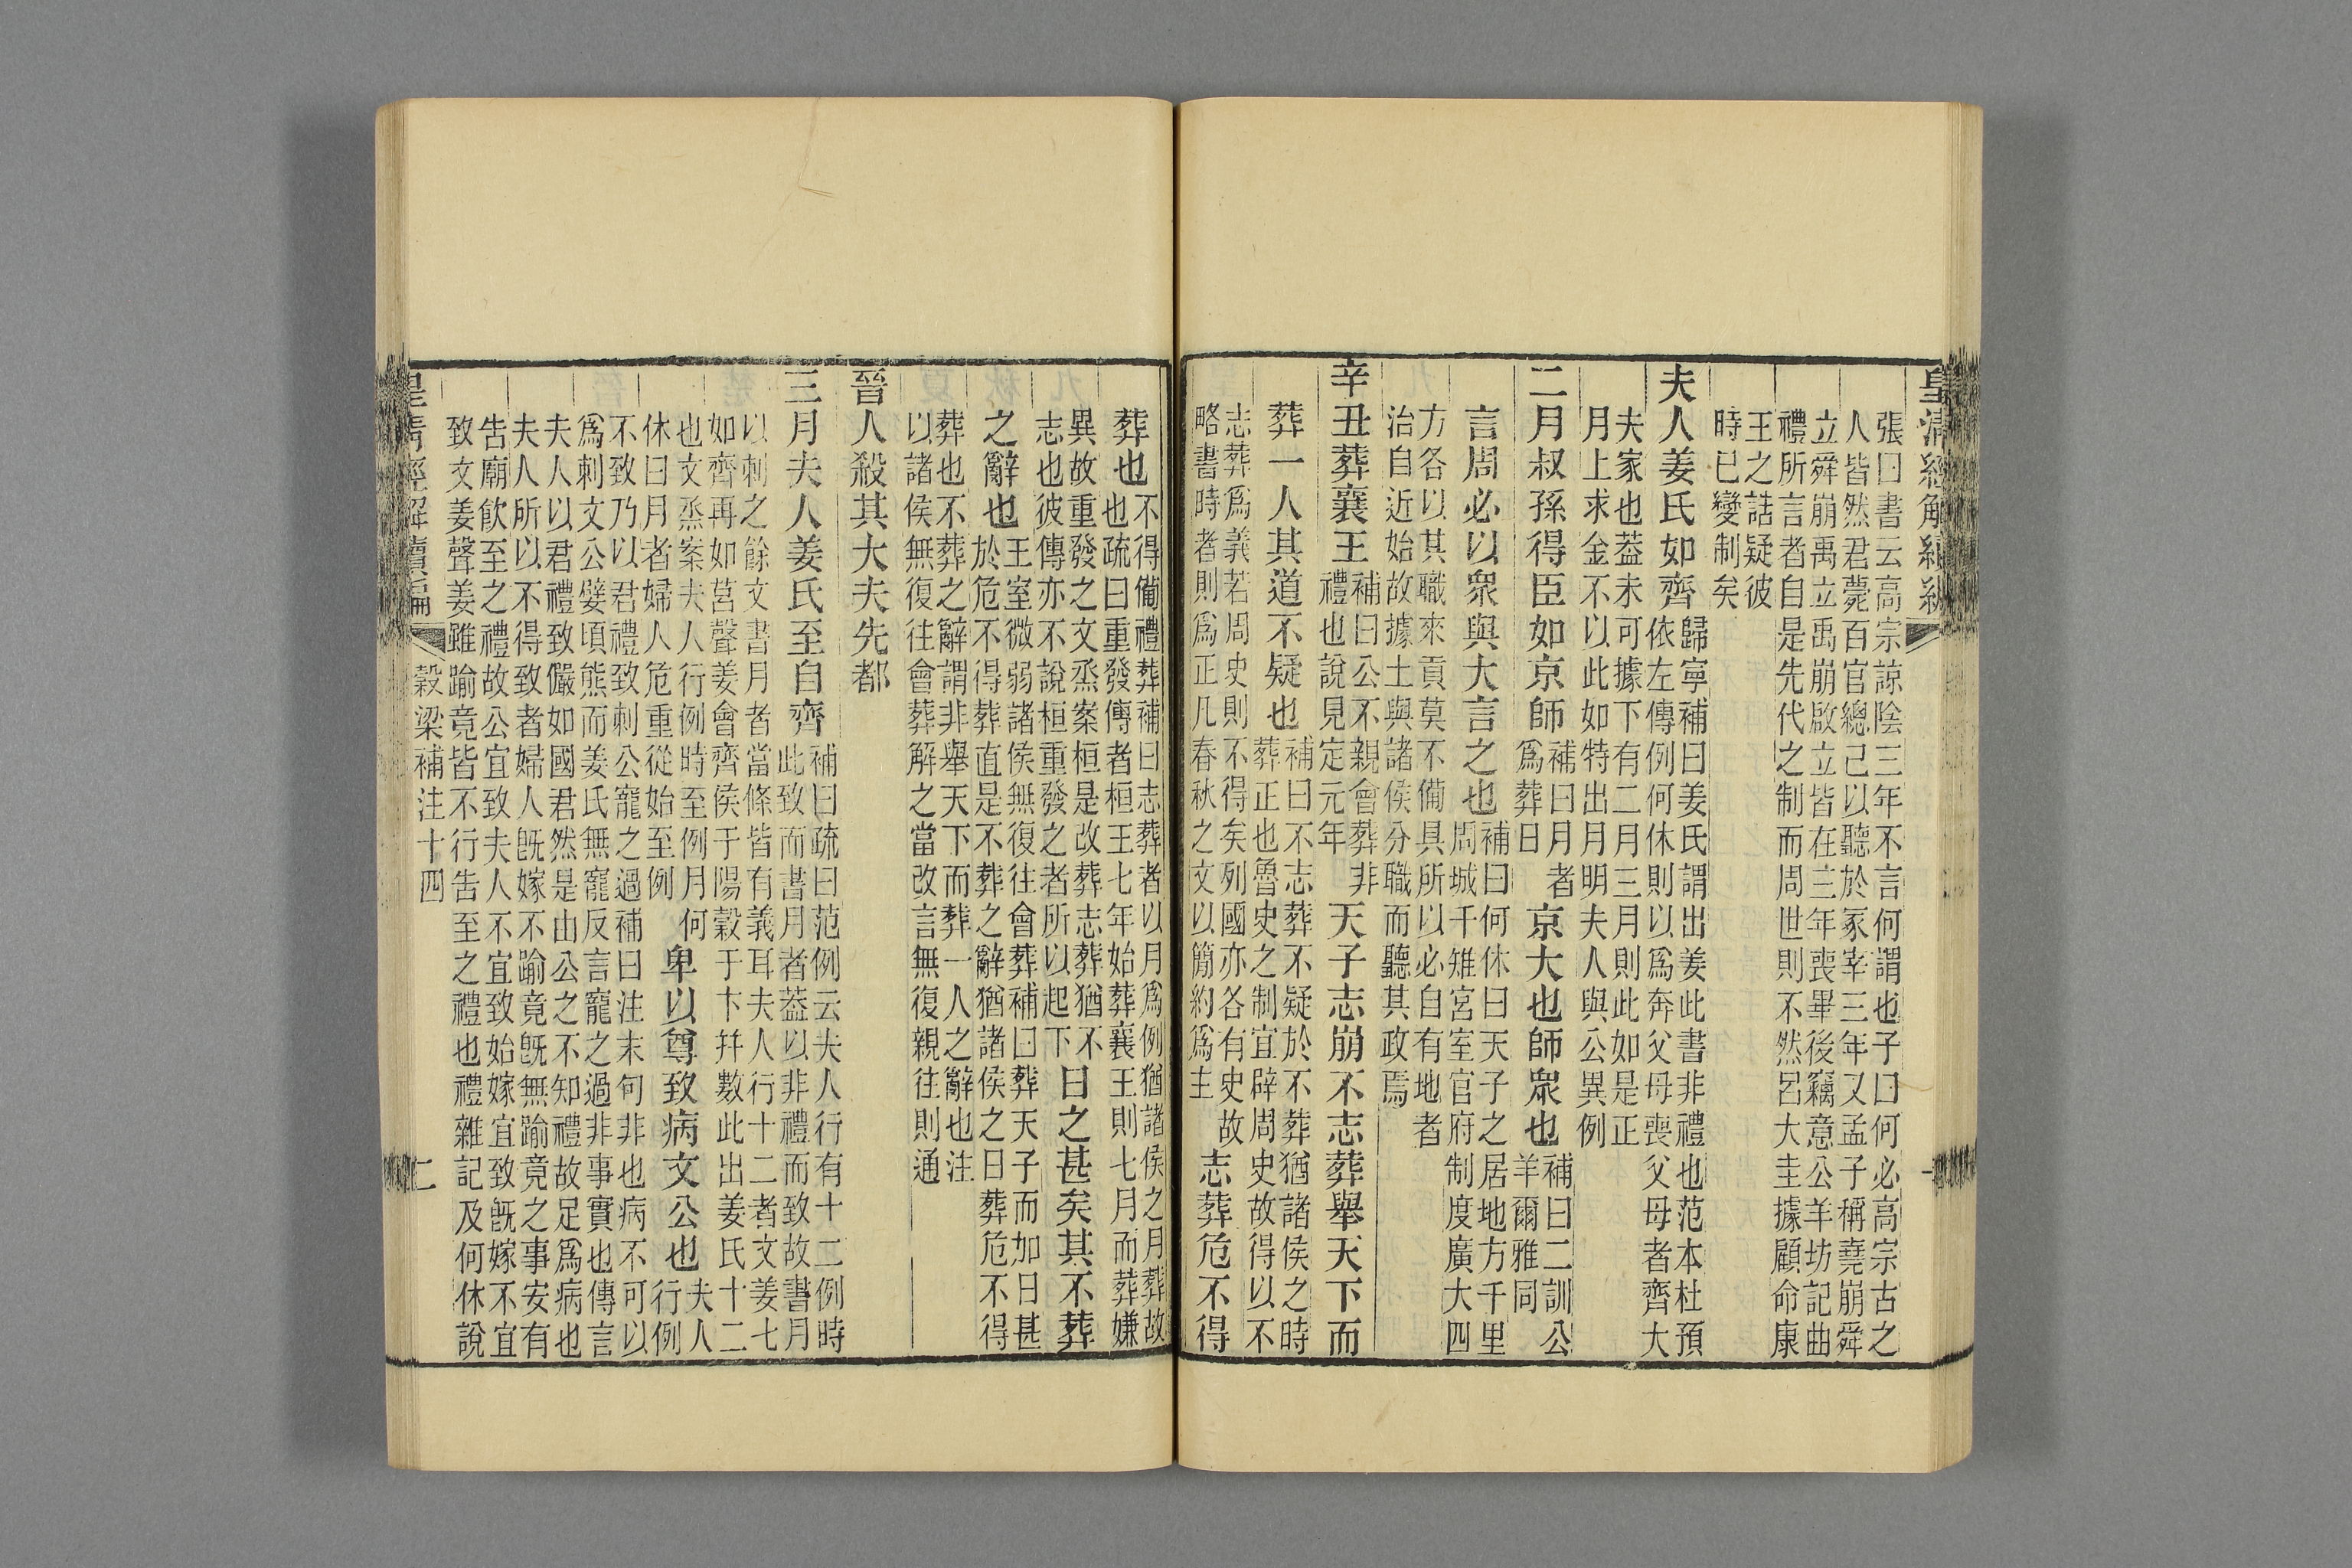 皇清經解續編
張曰書云高宗諒陰三年不言何謂也子曰何必高宗古之
人皆然君薨百官總己以聽於冢宰三年又孟子稱堯崩舜
立舜崩禹立禹崩啟立皆在三年喪畢後竊意公羊坊記曲
禮所言者自是先代之制而周世則不然呂大圭據顧命康
王之誥疑彼
時已變制矣
夫人姜氏如齊
歸寧補曰姜氏謂出姜此書非禮也范本杜預
依左傳例何休則以爲奔父母喪父母者齊大
夫家也葢未可據下有二月三月則此如是正
月上求金不以此如特出月明夫人與公異例
二月叔孫得臣如京師
補曰月者
爲葬日
京大也師衆也
補曰二訓公
羊爾雅同
言周必以衆與大言之也
補曰何休曰天子之居地方千里
周城千雉宮室官府制度廣大四
方各以其職來貢莫不備具所以必自有地者
治自近始故據土與諸侯分職而聽其政焉
辛丑葬襄王
補曰公不親會葬非
禮也說見定元年
天子志崩不志葬舉天下而
葬一人其道不疑也
補曰不志葬不疑於不葬猶諸侯之時
葬正也魯史之制宜辟周史故得以不
志葬爲義若周史則不得矣列國亦各有史故
略書時者則爲正凡春秋之文以簡約爲主
志葬危不得
葬也
不得備禮葬補曰志葬者以月爲例猶諸侯之月葬故
也疏曰重發傳者桓王七年始葬襄王則七月而葬嫌
異故重發之文烝案桓是改葬志葬猶不
志也彼傳亦不說桓重發之者所以起下
日之甚矣其不葬
之辭也
王室微弱諸侯無復往會葬補曰葬天子而加日甚
於危不得葬直是不葬之辭猶諸侯之日葬危不得
葬也不葬之辭謂非舉天下而葬一人之辭也注
以諸侯無復往會葬解之當改言無復親往則通
晉人殺其大夫先都
三月夫人姜氏至自齊
補曰疏曰范例云夫人行有十二例時
此致而書月者葢以非禮而致故書月
以刺之餘文書月者當條皆有義耳夫人行十二者文姜七
如齊再如莒聲姜會齊侯于陽穀于卞幷數此出姜氏十二
也文烝案夫人行例時至例月何
休曰月者婦人危重從始至例
卑以尊致病文公也
夫人
行例
不致乃以君禮致刺公寵之過補曰注末句非也病不可以
爲刺文公嬖頃熊而姜氏無寵反言寵之過非事實也傳言
夫人以君禮致儼如國君然是由公之不知禮故足爲病也
夫人所以不得致者婦人旣嫁不踰竟旣無踰竟之事安有
告廟飲至之禮故公宜致夫人不宜致始嫁宜致旣嫁不宜
致文姜聲姜雖踰竟皆不行告至之禮也禮雜記及何休說
皇清經解續編
穀梁補注十四
二